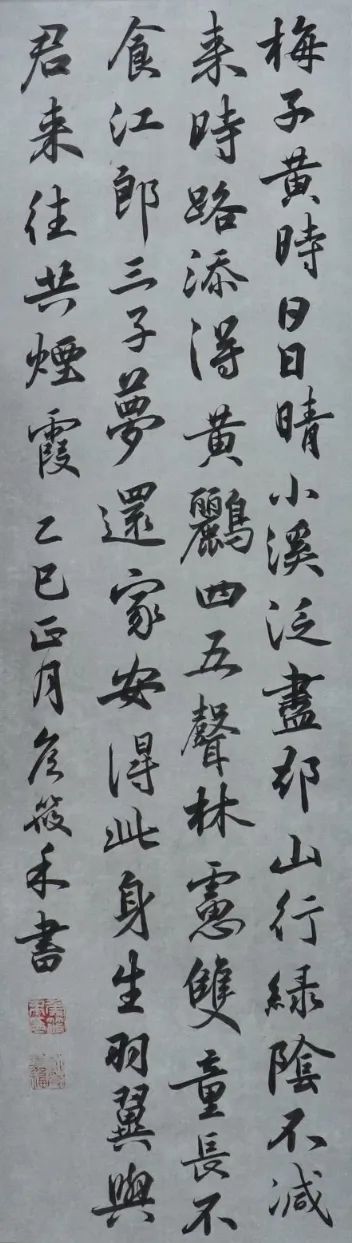 梅子黄時日日晴小溪泛盡却山行緑陰不減
来時路添得黄鸝四五聲林慮雙童長不
食江郎三子夢還家安得此身生羽翼與
君来往共煙霞 乙巳正月筱禾書